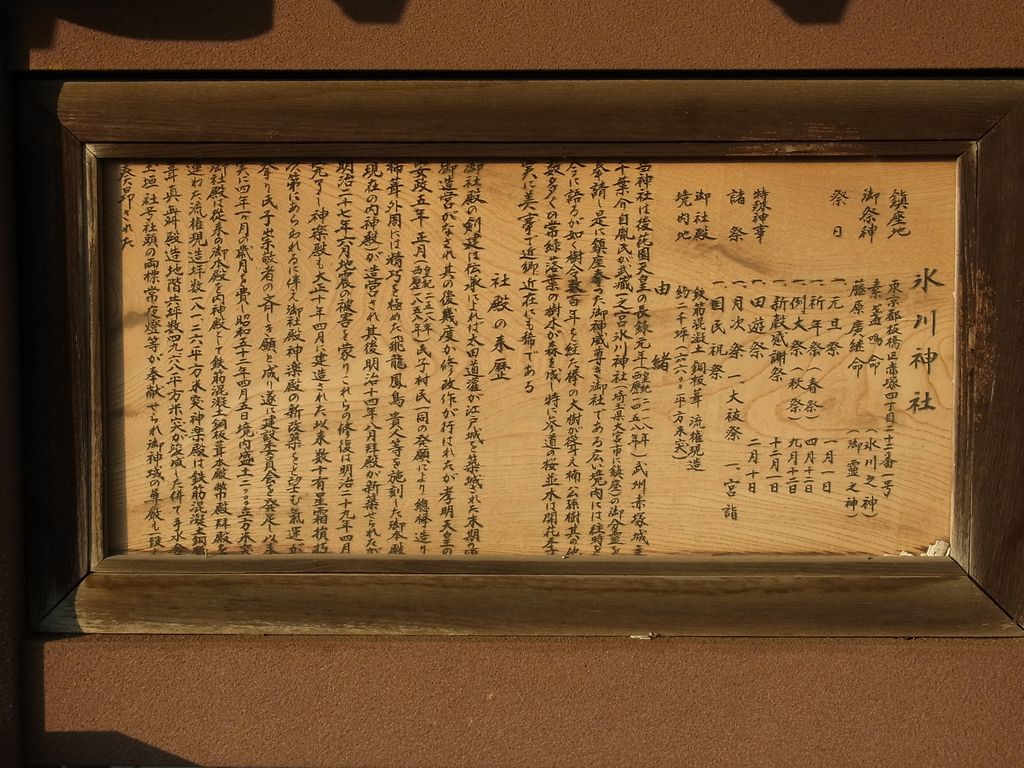 氷川神社
鎮座地 東京都板橋区赤塚四丁目二十二番一号
御祭神 素盞嗚命(氷川之神)
藤原廣継命(御霊之神)
祭日
一元旦祭 一月一日
一祈年祭(春祭) 四月十二日
一例大祭(秋祭) 九月十二日
一新穀感謝祭 十二月一日
特殊神事 一田遊祭 二月十日
諸祭 一月次祭 一大祓祭 一宮詣
一国民祝祭
御社殿 鉄筋混凝土銅板葺流権現造
境内地 約二千坪(六六〇〇平方米突)
由緒
当神社は後花園天皇の長録元年(西紀一四五八年)武州赤塚城主
千葉介自胤氏が武蔵一之宮氷川神社(埼玉県大宮市に鎮座)の御分霊を
奉請し是に鎮座奉った御神威尊き御社である広い境内には往時を
今に語るが如く樹令数百年を経た欅の大樹が聳え楠公孫樹其の他
数多くの常緑落葉の樹木が森を成し特に参道の桜並木は開花季
実に美事で近郷近在にも稀である
社殿の来歴
御社殿の剏建は伝承に依れば太田道灌が江戸城を築城された末期の頃
御造営がなされ其の後幾度か修改作が行はれたが孝明天皇の
安政五年正月氏子村民一同の発願により総欅造り
柿葺外周には精巧を極めた飛龍鳳凰貴人等を施刻した御本殿
(現在の内神殿)が造営され其後明治十四年八月拝殿が新築せられたが
明治二十七年六月地震の被害を蒙りこれらの修復は明治二十九年四月
完了し神楽殿も大正十年四月に建造された以来数十有星霜損朽
次第にあらわれるに伴え御社殿神楽殿の新改築をと望む氣運が
挙り氏子崇敬者の斉しき願と成り遂に建設委員会を発足し以来
実に四年六月の歳月を費し昭和五十二年四月五日境内盛土二〇〇立方米突
御社殿は従来の御本殿を内神殿として鉄筋混凝土銅板葺本殿幣殿拝殿を
連ねた流権現造坪数一八一二六平方米突神楽殿は鉄筋混凝土銅板
葺真舞殿造地階共坪数四九六八平方米突が築城した併て手水舎
玉垣社号社頭の両標常夜燈等が奉献せられ御神域の尊厳も一段と